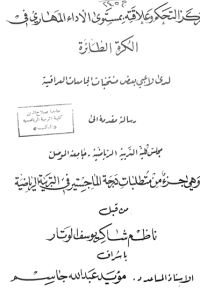 مركز التحكم وعلاقته بمستوى الأداء المهاري في
الكرة الطائرة
لدى لاعبي بعض منتخبات الجامعات العراقية
رسالة مقدمة الى
مجلس كلية التربية الرياضية - جامعة الموصل
وهي جزء من متطلبات درجة الماجستير في التربية الرياضية
من قبل
ناظم شاكر يوسف الوتار
بإشراف
الاستاذ المساعد د. مؤيد عبدالله جاسم